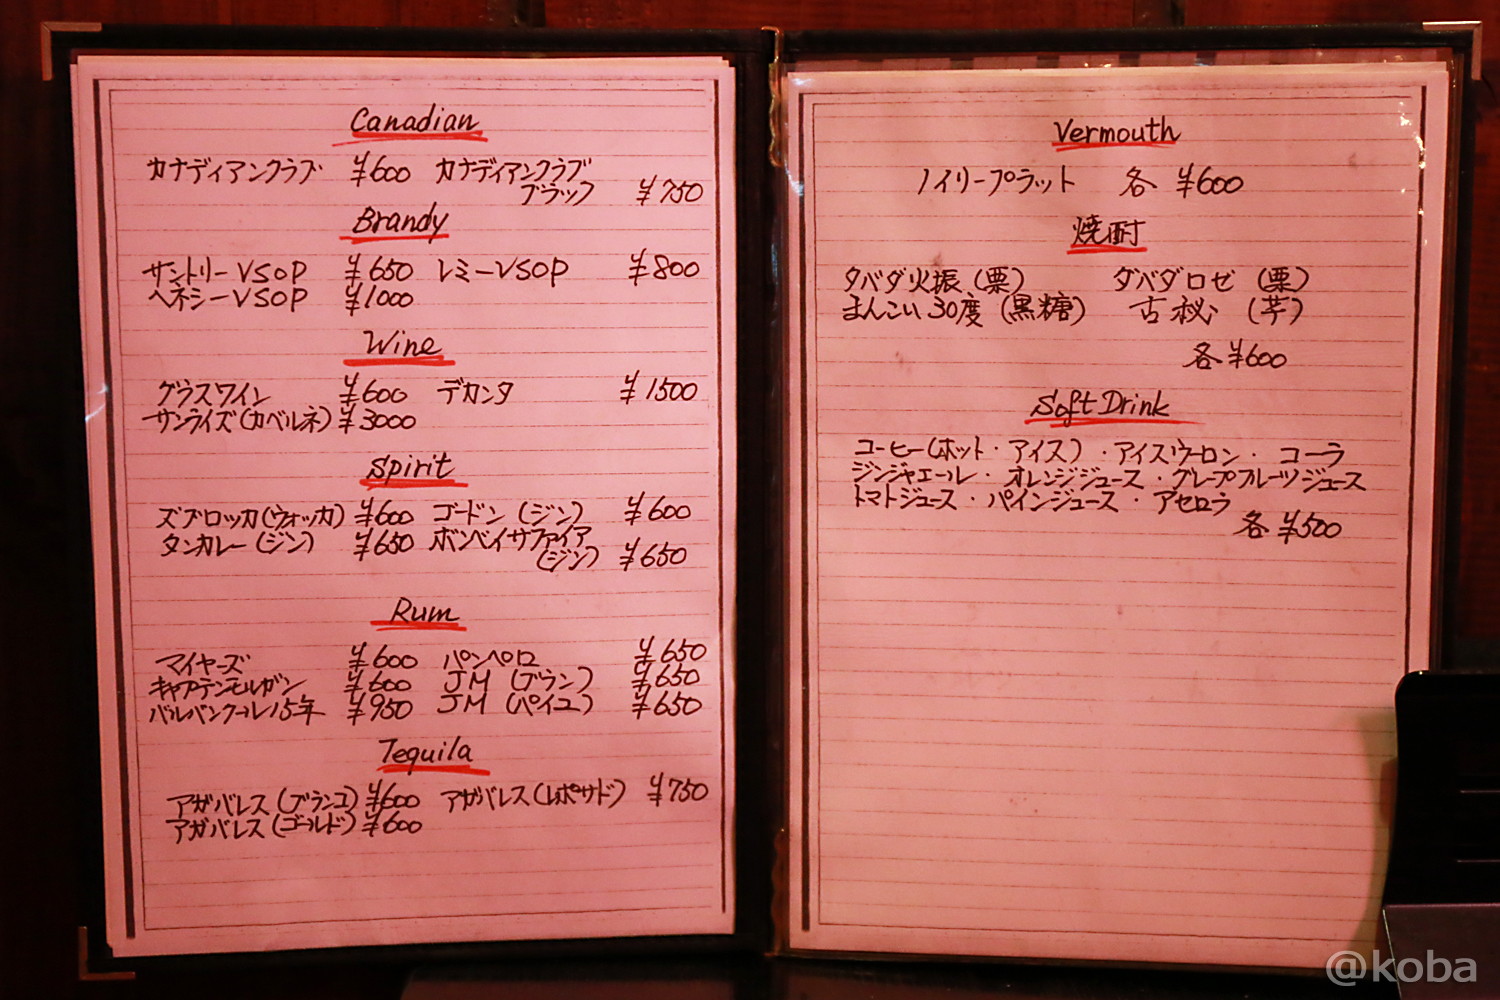 Canadian
カナディアンクラブ ¥600 カナディアンクラブ
ブラック ¥750
Brandy
サントリーVSOP ¥650 レミーVSOP ¥800
ヘネシーVSOP ¥1000
Wine
グラスワイン ¥600 デカンタ ¥1500
サンライズ(カベルネ) ¥3000
Spirit
ズブロッカ(ウォッカ) ¥600 ゴードン(ジン) ¥600
タンカレー(ジン) ¥650 ボンベイサファイア
(ジン) ¥650
Rum
マイヤーズ ¥600 パンペロ ¥650
キャプテンモルガン ¥600 JM(ブラン) ¥650
バルバンクール15年 ¥950 JM(パイユ) ¥650
Tequila
アガバレス(ブランコ) ¥600 アガバレス(レポサド) ¥750
アガバレス(ゴールド) ¥600
Vermouth
ノイリープラット 各 ¥600
焼酎
タバダ火振(栗) ダバダロゼ(栗)
まんこい30度(黒糖) 古秘(芋)
各¥600
Soft Drink
コーヒー(ホット・アイス)・アイスウーロン・コーラ
ジンジャエール・オレンジジュース・グレープフルーツジュース
トマトジュース・パインジュース・アセロラ
各¥500
@koba